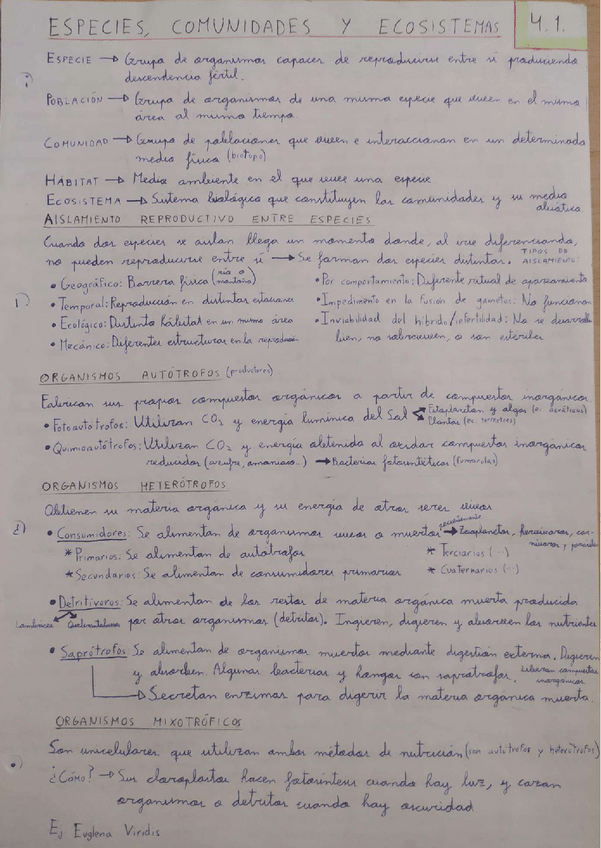 ESPECIES, COMUNIDADES Y ECOSISTEMAS 4.1.
ESPECIE → Grupo de organismos capaces de reproducirse entre sí produciendo
descendencia fértil.
POBLACIÓN → Grupo de organismos de una misma especie que viven en el mismo
área al mismo tiempo.
COMUNIDAD → Grupo de poblaciones que viven e interaccionan en un determinado
medio físico (biotopo)
HÁBITAT → Medio ambiente en el que vive una especie
ECOSISTEMA → Sistema biológico que constituyen las comunidades y su medio
abiótico
AISLAMIENTO REPRODUCTIVO ENTRE ESPECIES
Cuando dos especies se aislan llega un momento donde, al irse diferenciando,
no pueden reproducirse entre sí → Se forman dos especies distintas. TIPOS DE AISLAMIENTO:
• Geográfico: Barrera física (río o montaña)
• Por comportamiento: Diferente ritual de apareamiento
1) • Temporal: Reproducción en distintas estaciones
• Impedimento en la fusión de gametos: No funcionan
• Ecológico: Distinto hábitat en un mismo área
• Inviabilidad del híbrido/infertilidad: No se desarrolla
bien, no sobreviven, o son estériles
• Mecánico: Diferentes estructuras en la reproducción
ORGANISMOS AUTÓTROFOS (productores)
Fabrican sus propios compuestos orgánicos a partir de compuestos inorgánicos
• Fotoautótrofos: Utilizan CO2 y energía lumínica del Sol → Fitoplancton y algas (ec. acuáticos)
Plantas (ec. terrestres)
• Quimioautótrofos: Utilizan CO2 y energía obtenida al oxidar compuestos inorgánicos
reducidos (azufre, amoniaco..) → Bacterias fotosintéticas (fumarolas)
ORGANISMOS HETERÓTROFOS
Obtienen su materia orgánica y su energía de otros seres vivos
2) • Consumidores: Se alimentan de organismos vivos o muertos recientemente → Zooplancton, herbívoros, car-
nívoros y parásitos
* Primarios: Se alimentan de autótrofos * Terciarios (...)
* Secundarios: Se alimentan de consumidores primarios * Cuaternarios (...)
• Detritívoros: Se alimentan de los restos de materia orgánica muerta producida
Lombrices por otros organismos (detritos). Ingieren, digieren y absorben los nutrientes
• Saprótrofos: Se alimentan de organismos muertos mediante digestión externa. Digieren
y absorben. Algunas bacterias y hongos son saprótrofos. Liberan compuestos
inorgánicos
→ Secretan enzimas para digerir la materia orgánica muerta.
ORGANISMOS MIXOTRÓFICOS
Son unicelulares que utilizan ambos métodos de nutrición (son autótrofos y heterótrofos)
¿Cómo? → Sus cloroplastos hacen fotosíntesis cuando hay luz, y cazan
organismos o detritos cuando hay oscuridad
Ej Euglena Viridis